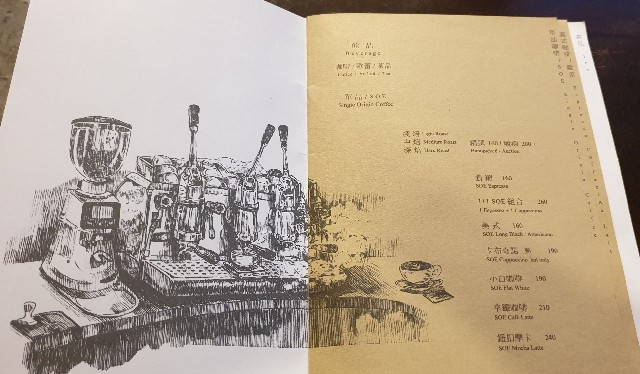 飲 品
Beverage
咖啡 / 歐蕾 / 茶品
單品 / SOE
Single Origin Coffee
淺焙 Light Roast
中焙 Medium Roast
深焙 Dark Roast
精選 180 / 競標 200
Handpicked / Auction
義式 160
SOE Espresso
1+1 SOE 組合 260
1 Espresso + 1 Cappuccino
美式 160
SOE Long Black / Americano
卡布奇諾 熱 190
SOE Cappuccino hot only
小白咖啡 190
SOE Flat White
拿鐵咖啡 210
SOE Café Latte
摩卡 240
SOE Mocha Latte
單品咖啡 / SOE Single Origin Coffee